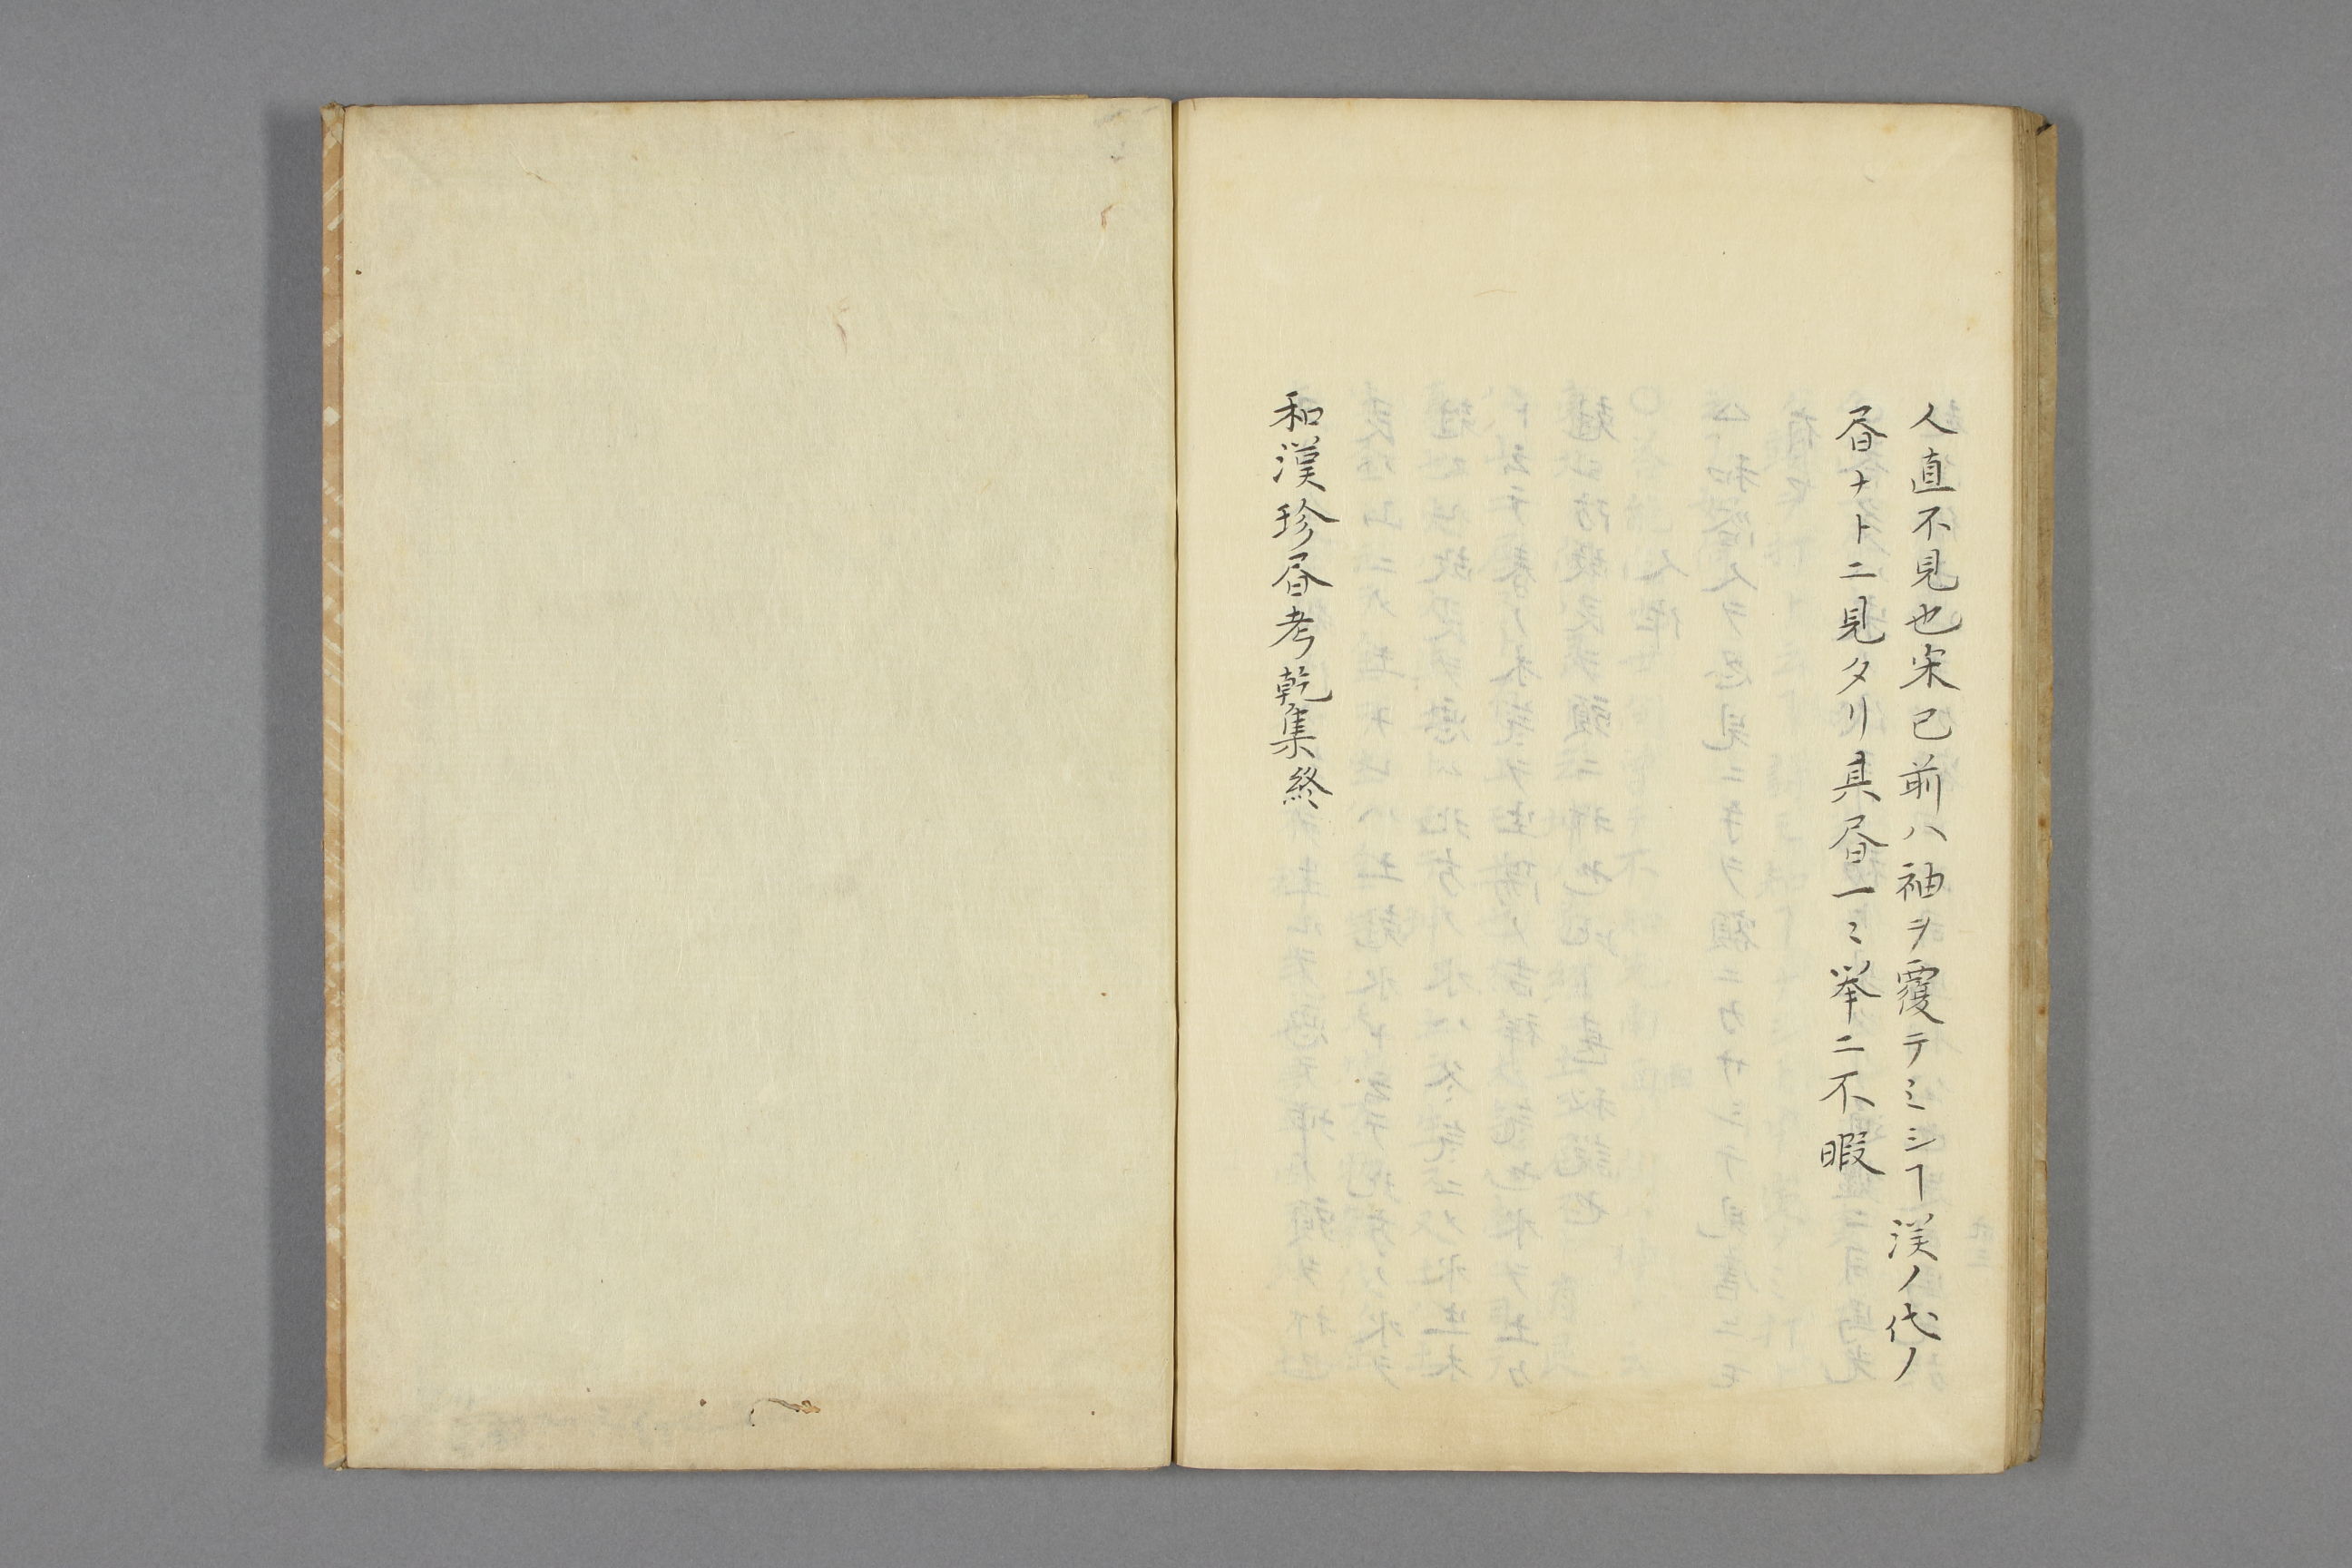 人直不見也宋已前ハ袖ヲ覆テミシヿ漢ノ代ノ
昼ナトニ見タリ具昼一ミ挙ニ不暇
和漢珍昼考乾集終